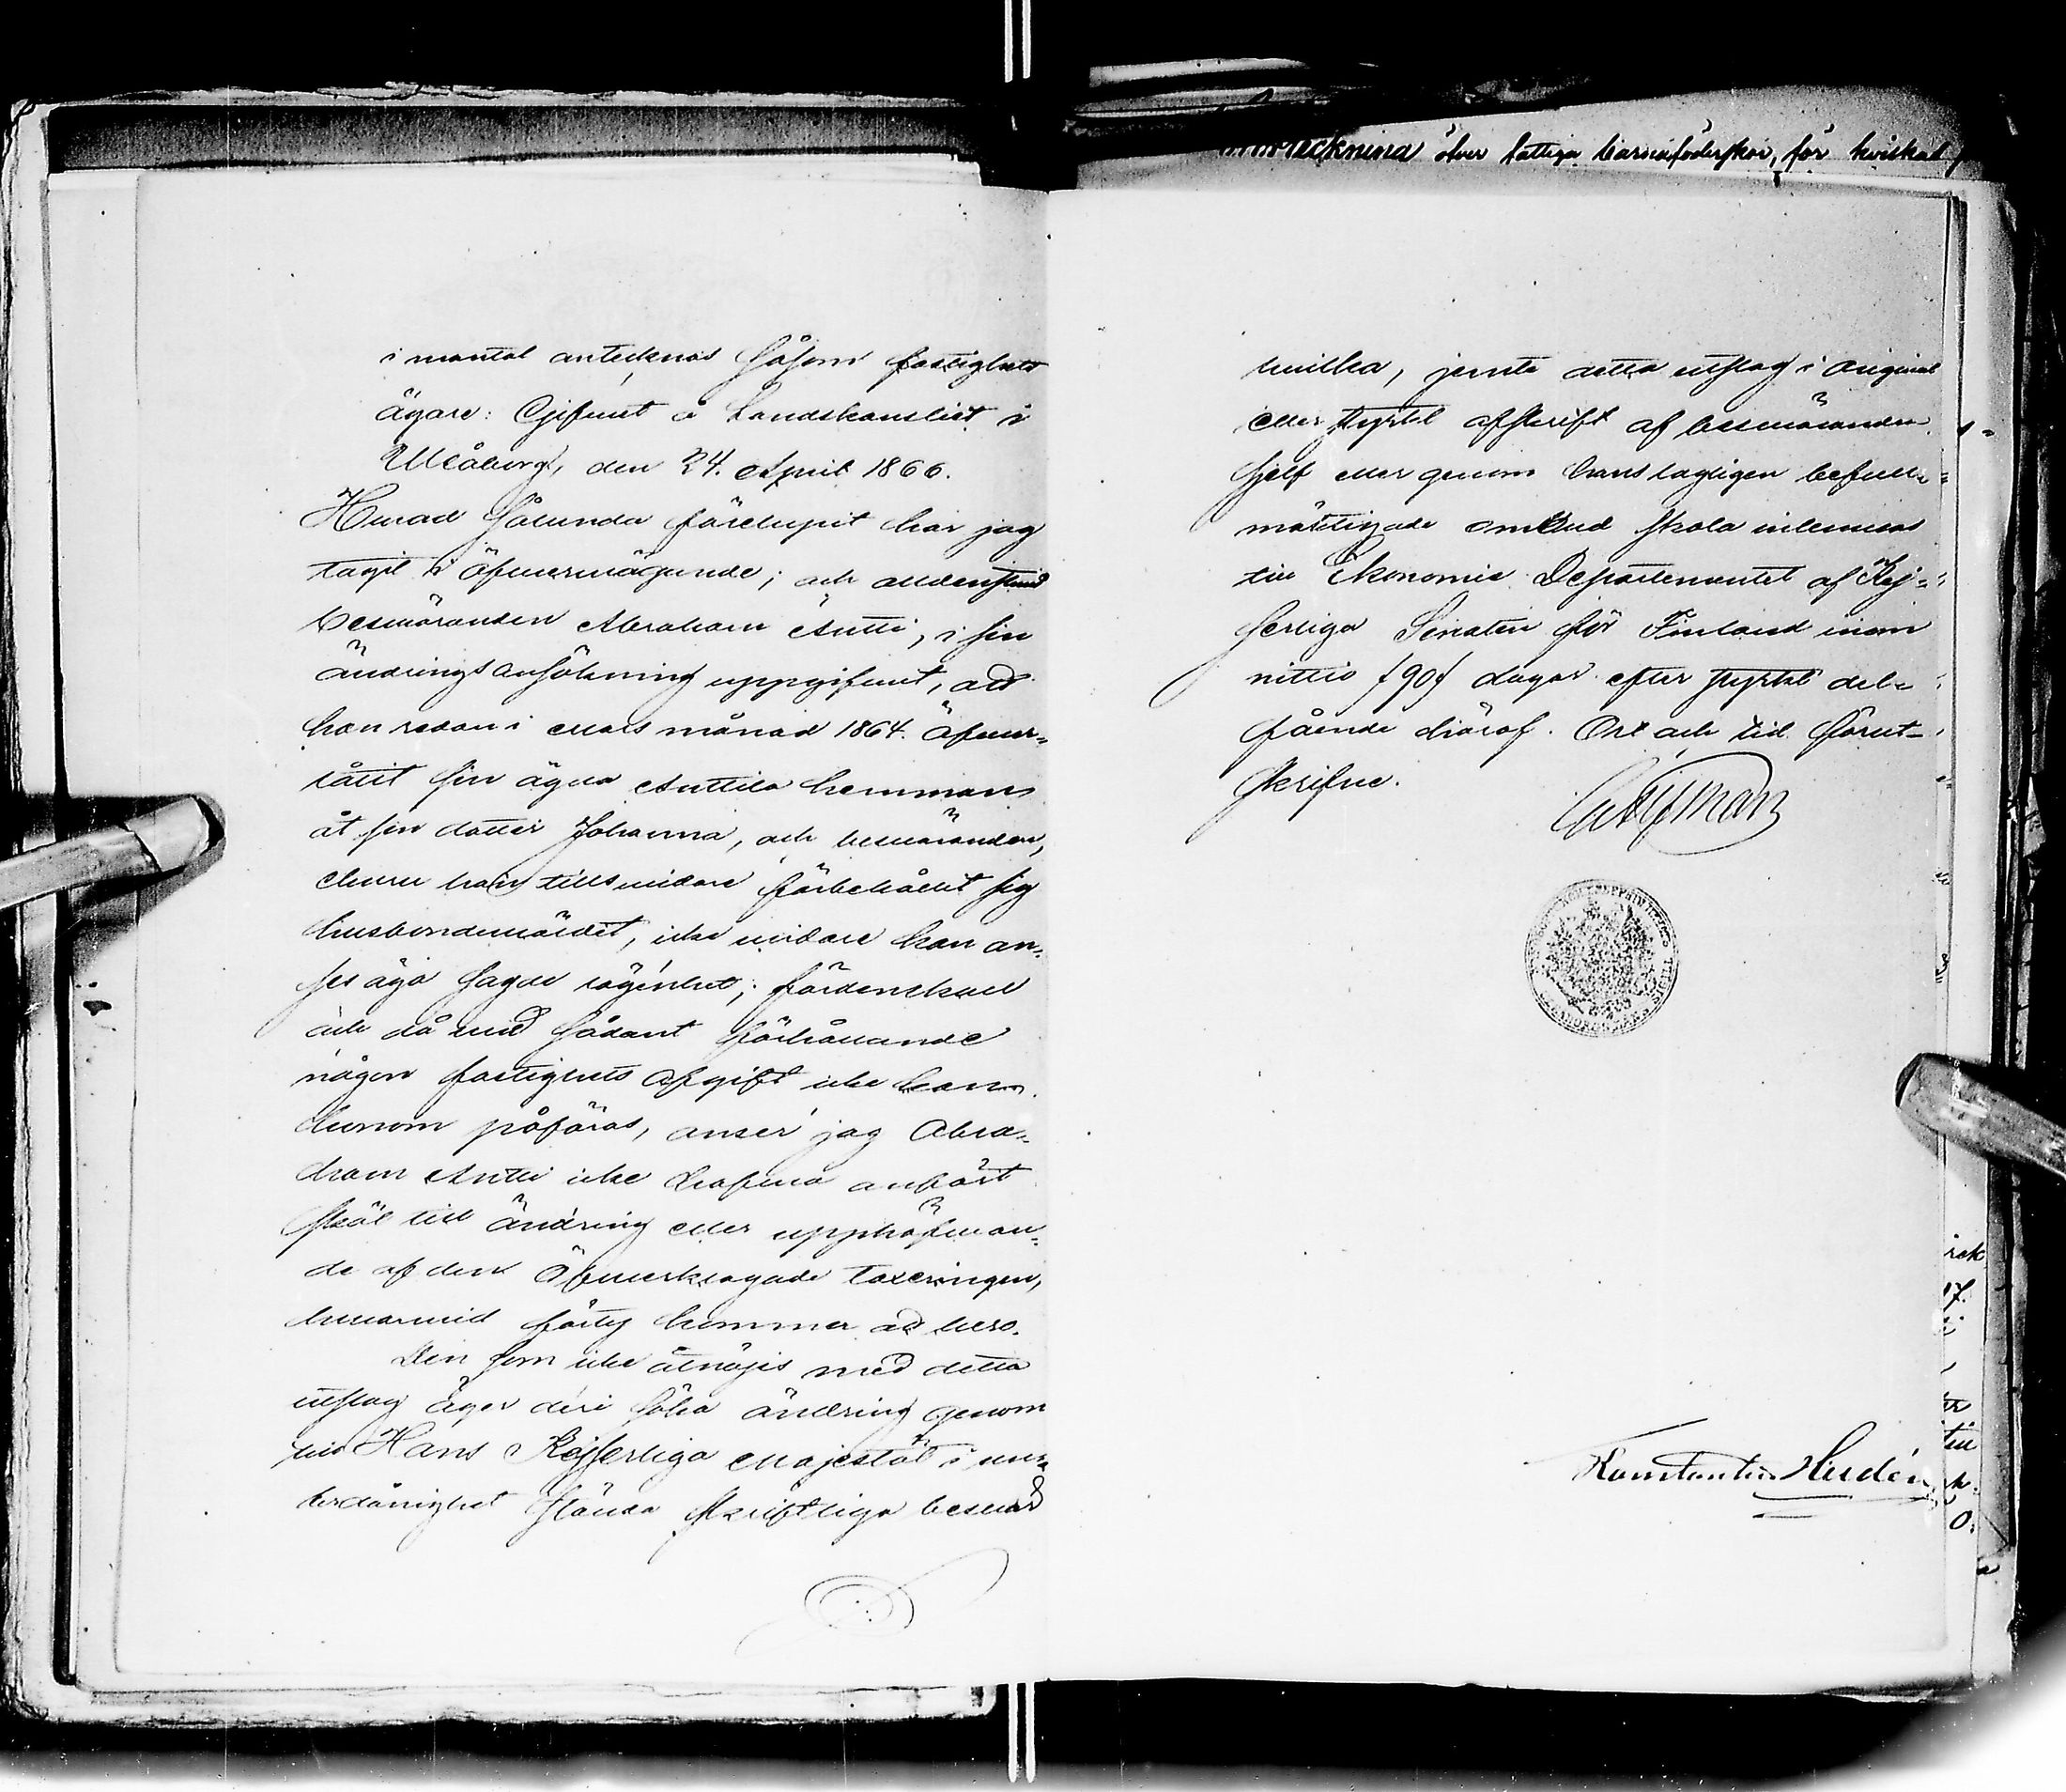 i mantal antecknas såsom fastighets
ägare: Gifwet å Landskansliet i
Uleåborg, den 24. April 1866.
Hwad sålunda förelupit har jag
tagit i öfwerwägande; och alldenstund
beswäranden Abraham Antti, i sin
ändringsansökning uppgifwit, att
han redan i Mars månad 1864. öfwer-
låtit sin ägda Anttila hemman
åt sin dotter Johanna, och beswäranden,
ehuru han tillswidare förbehållit sig
husbondewäldet, icke widare kan an-
ses äga sagde lägenhet; fördenskull
och då wid sådant förhållande
någon fastighets afgift icke kan
honom påföras, anser jag Abra-
ham Antti icke hafwa anfört
skäl till ändring eller upphäfwan-
de af den öfwerklagade taxeringen,
hwarwid förty kommer att bero.
Den som icke åtnöjes med detta
utslag äger deri söka ändring genom
till Hans Kejserliga Majestät i un-
derdånighet stälda skriftliga beswär
förteckning över fattiga barnaföderskor, för
hwilka, jemte detta utslag i original
eller styrkt afskrift af beswäranden
sjelf eller genom hans lagligen befull-
mäktigade ombud skola inlemnas
till Ekonomie Departementet af Kej-
serliga Senaten för Finland inom
nittio /90/ dagar efter styrkt del-
fående häraf. Ort och tid förut-
skrifne.
Konstantin Hildén